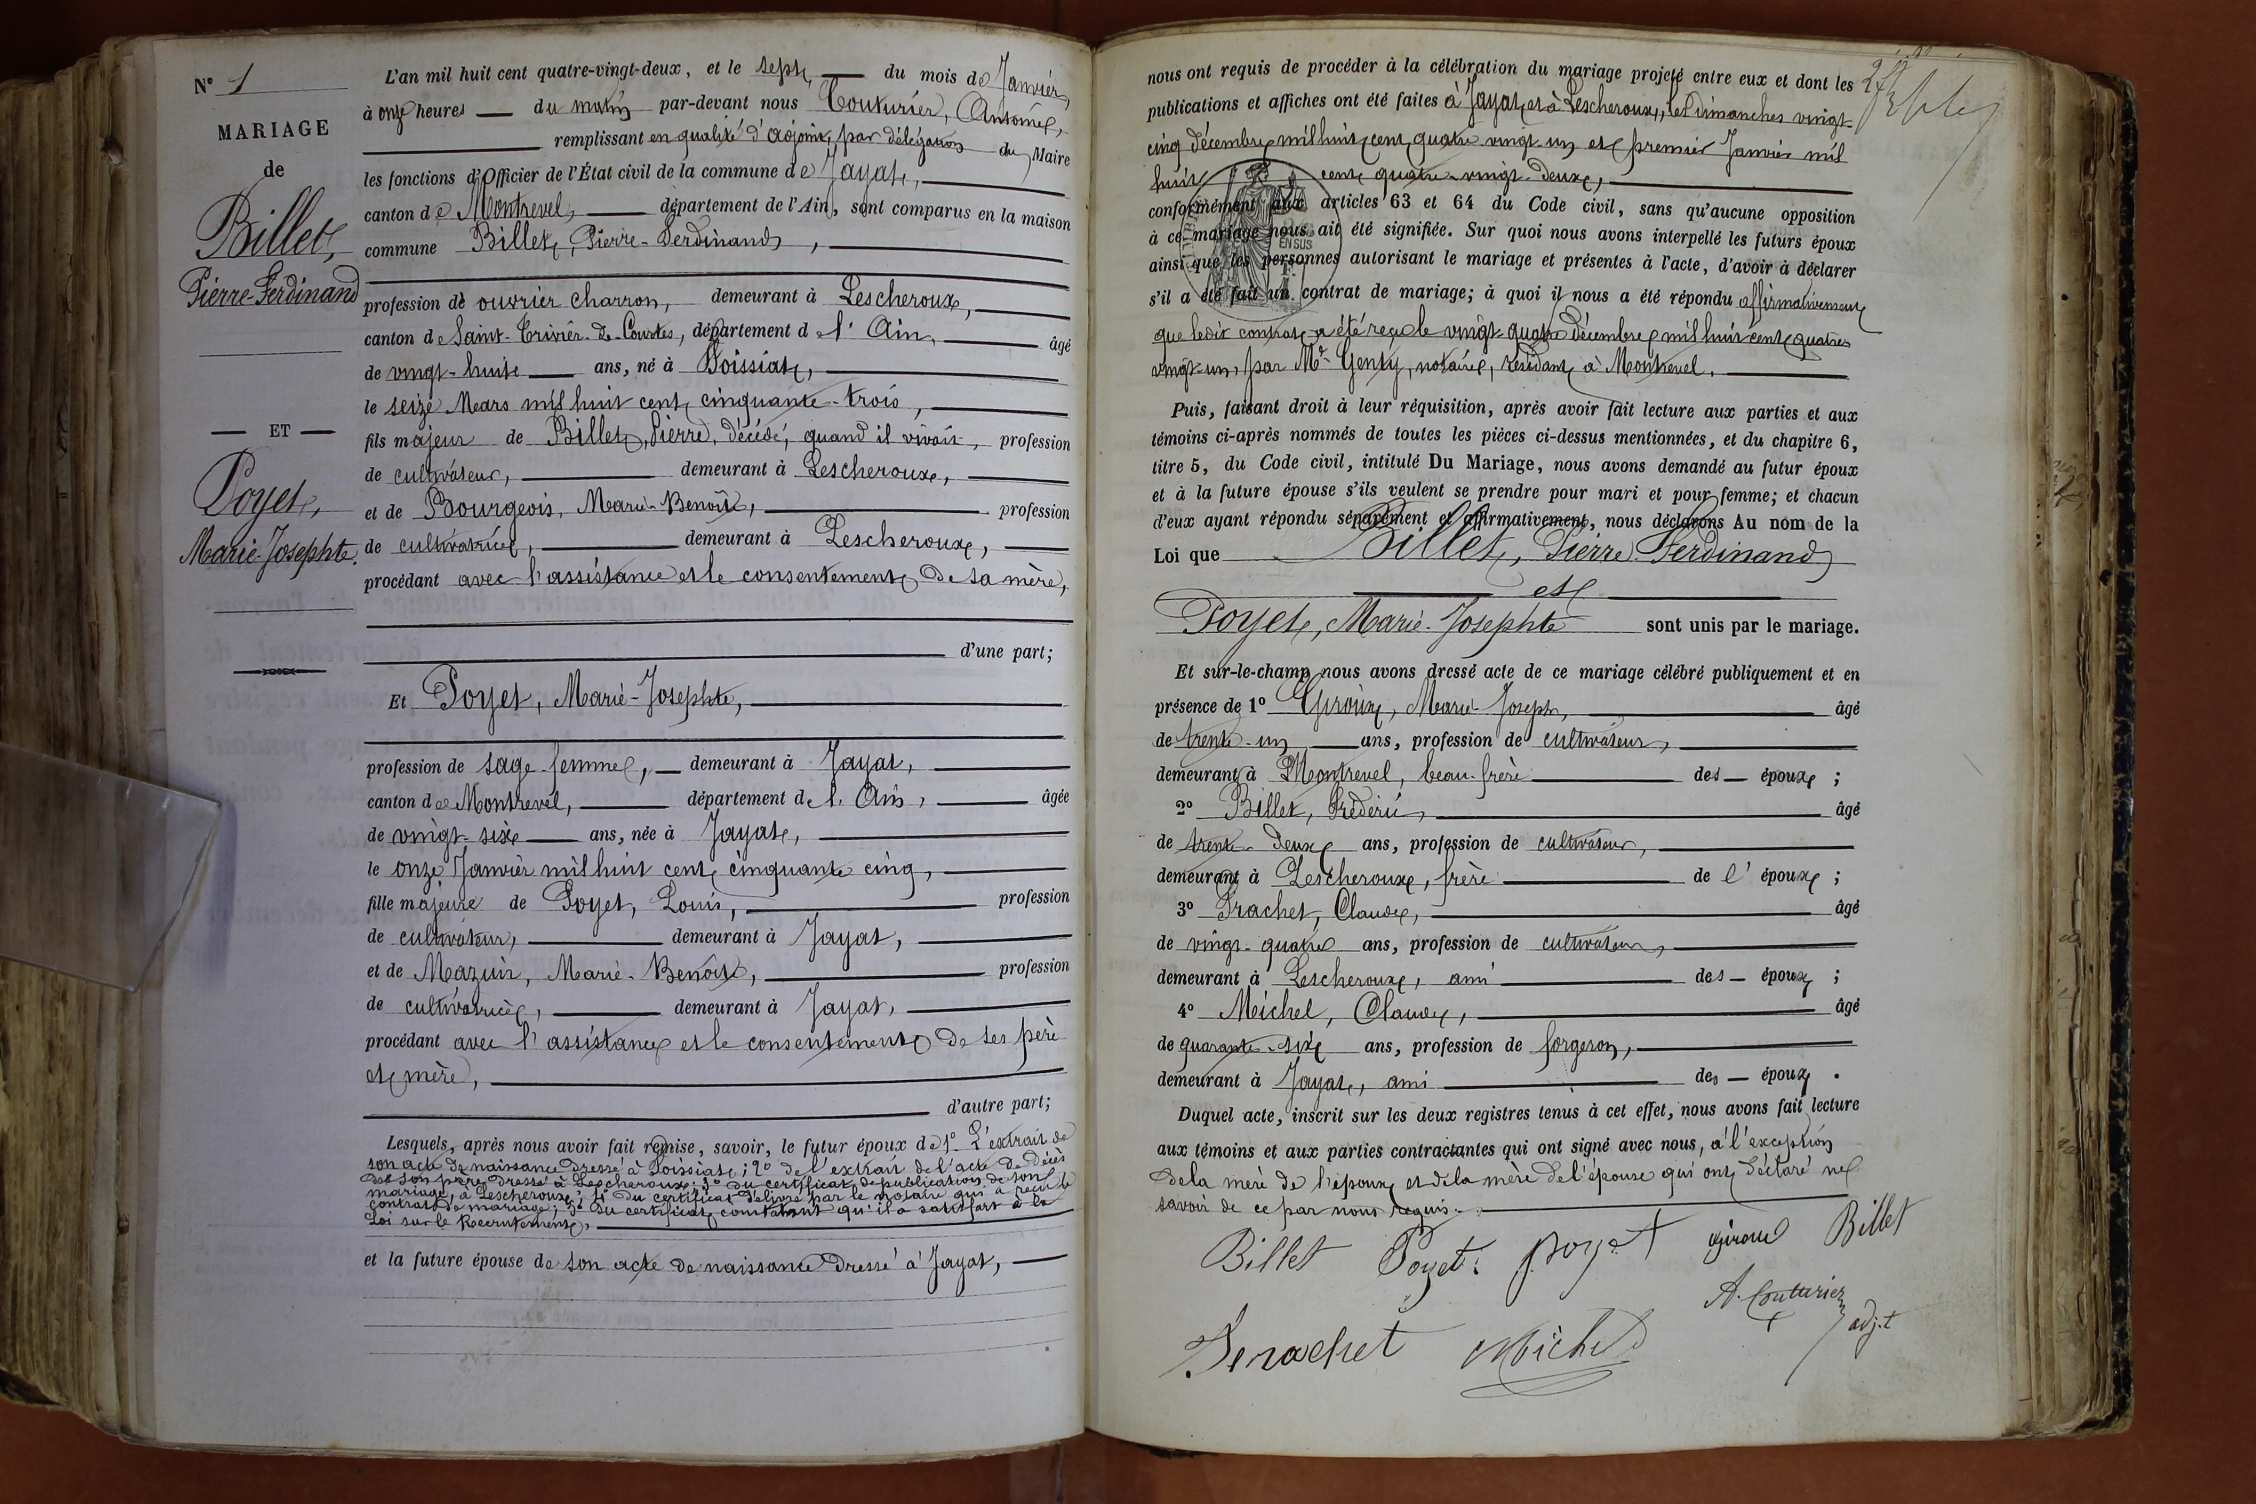 N° 1
MARIAGE
de
Billet,
Pierre-Ferdinand
ET
Poyet,
Marie-Josephte.
L'an mil huit cent quatre-vingt-deux, et le sept du mois de Janvier,
à onze heures du matin par-devant nous Couturier, Antoine,
remplissant en qualité d'adjoint, par délégation du Maire
les fonctions d'Officier de l'État civil de la commune de Jayat,
canton de Montrevel, département de l'Ain, sont comparus en la maison
commune Billet, Pierre-Ferdinand,
profession de ouvrier charron, demeurant à Lescheroux,
canton de Saint-Trivier-de-Courtes, département de l'Ain, âgé
de vingt-huit ans, né à Foissiat,
le seize Mars mil huit cent cinquante-trois,
fils majeur de Billet, Pierre, décédé, quand il vivait, profession
de cultivateur, demeurant à Lescheroux,
et de Bourgeois, Marie-Benoîte, profession
de cultivatrice, demeurant à Lescheroux,
procédant avec l'assistance et le consentement de sa mère,
d'une part;
Et Poyet, Marie-Josephte,
profession de sage-femme, demeurant à Jayat,
canton de Montrevel, département de l'Ain, âgée
de vingt-six ans, née à Jayat,
le onze Janvier mil huit cent cinquante cinq,
fille majeure de Poyet, Louis, profession
de cultivateur, demeurant à Jayat,
et de Mazuir, Marie-Benoîte, profession
de cultivatrice, demeurant à Jayat,
procédant avec l'assistance et le consentement de ses père
et mère,
d'autre part;
Lesquels, après nous avoir fait remise, savoir, le futur époux de 1° L'extrait de
son acte de naissance dressé à Foissiat; 2° de l'extrait de l'acte de décès
de son père dressé à Lescheroux; 3° du certificat de publication de son
mariage, à Lescheroux; 4° du certificat délivré par le notaire qui a reçu le
contrat de mariage; 5° du certificat constatant qu'il a satisfait à la
Loi sur le Recrutement,
et la future épouse de son acte de naissance dressé à Jayat,
nous ont requis de procéder à la célébration du mariage projeté entre eux et dont les
publications et affiches ont été faites à Jayat et à Lescheroux, les Dimanches vingt-
cinq décembre mil huit cent quatre vingt-un et premier Janvier mil
huit cent quatre-vingt-deux,
conformément aux articles 63 et 64 du Code civil, sans qu'aucune opposition
à ce mariage nous ait été signifiée. Sur quoi nous avons interpellé les futurs époux
ainsi que les personnes autorisant le mariage et présentes à l'acte, d'avoir à déclarer
s'il a été fait un contrat de mariage; à quoi il nous a été répondu affirmativement
que ledit contrat a été reçu le vingt-quatre décembre mil huit cent quatre
vingt-un, par Mr. Genty, notaire, résidant à Montrevel.
EN SUS
Puis, faisant droit à leur réquisition, après avoir fait lecture aux parties et aux
témoins ci-après nommés de toutes les pièces ci-dessus mentionnées, et du chapitre 6,
titre 5, du Code civil, intitulé Du Mariage, nous avons demandé au futur époux
et à la future épouse s'ils veulent se prendre pour mari et pour femme; et chacun
d'eux ayant répondu séparément et affirmativement, nous déclarons Au nom de la
Loi que Billet, Pierre Ferdinand
et
Poyet, Marie-Josephte sont unis par le mariage.
Et sur-le-champ nous avons dressé acte de ce mariage célébré publiquement et en
présence de 1° Giroux, Marie-Joseph, âgé
de trente-un ans, profession de cultivateur,
demeurant à Montrevel, beau-frère des époux;
2° Billet, Frédéric, âgé
de trente-deux ans, profession de cultivateur,
demeurant à Lescheroux, frère de l'époux;
3° Frachet, Claude, âgé
de vingt-quatre ans, profession de cultivateur,
demeurant à Lescheroux, ami des époux;
4° Michel, Claude, âgé
de quarante-six ans, profession de forgeron,
demeurant à Jayat, ami des époux.
Duquel acte, inscrit sur les deux registres tenus à cet effet, nous avons fait lecture
aux témoins et aux parties contractantes qui ont signé avec nous, à l'exception
de la mère de l'époux et de la mère de l'épouse qui ont déclaré ne
savoir de ce par nous requis.
Billet Poyet poyet giroux Billet
A. Couturier
adj.t
Ferachet Michel